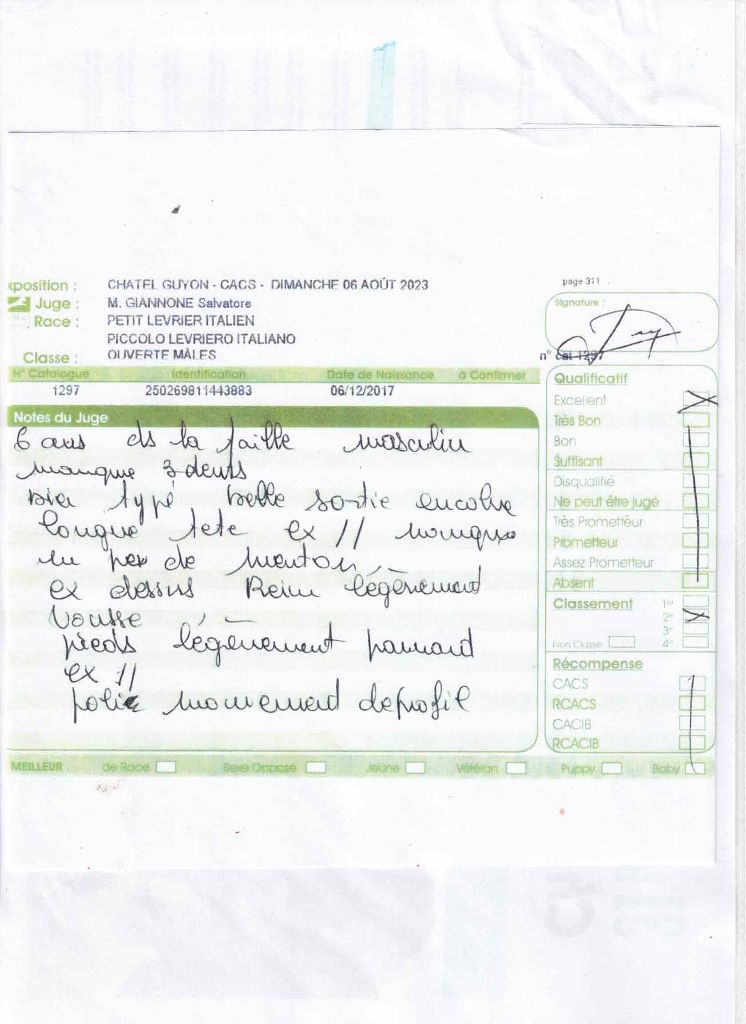 xposition : CHATEL GUYON - CACS - DIMANCHE 06 AOÛT 2023
page 311
Juge : M. GIANNONE Salvatore
Signature :
Race : PETIT LEVRIER ITALIEN
PICCOLO LEVRIERO ITALIANO
Classe : OUVERTE MÂLES
n° cat 1297
N° Catalogue Identification Date de Naissance à Confirmer
1297 250269811443883 06/12/2017
Notes du Juge
6 ans ds la taille masculin
manque 3 dents
bien typé belle sortie encolure
longue tete ex // manque
un peu de menton
ex dessus Rein légèrement
vousse
pieds legerement panard
ex //
poli mouvement de profil
Qualificatif
Excellent
Très Bon
Bon
Suffisant
Disqualifié
Ne peut être jugé
Très Prometteur
Prometteur
Assez Prometteur
Absent
Classement 1er
2e
3e
Non Classé 4e
Récompense
CACS
RCACS
CACIB
RCACIB
MEILLEUR : de Race Sexe Opposé Jeune Vétéran Puppy Baby